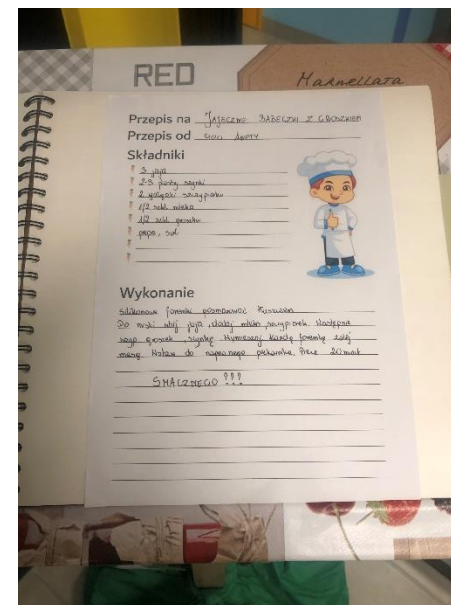 RED
Marmellata
Przepis na Jajeczne babeczki z groszkiem
Przepis od
Składniki
3 jaja
2-3 plastry szynki
2 gałązki szczypioru
1/2 szkl. mleka
1/2 szkl. groszku
pieprz, sól
Wykonanie
Silikonowe foremki posmarować tłuszczem
Do miski wbij jaja, dodaj mleko, szczypiorek. Następnie
groszek, szynkę. Wymieszaj. Każdą foremkę zalej
masą. Wstaw do nagrzanego piekarnika. Piecz 20 minut
SMACZNEGO !!!